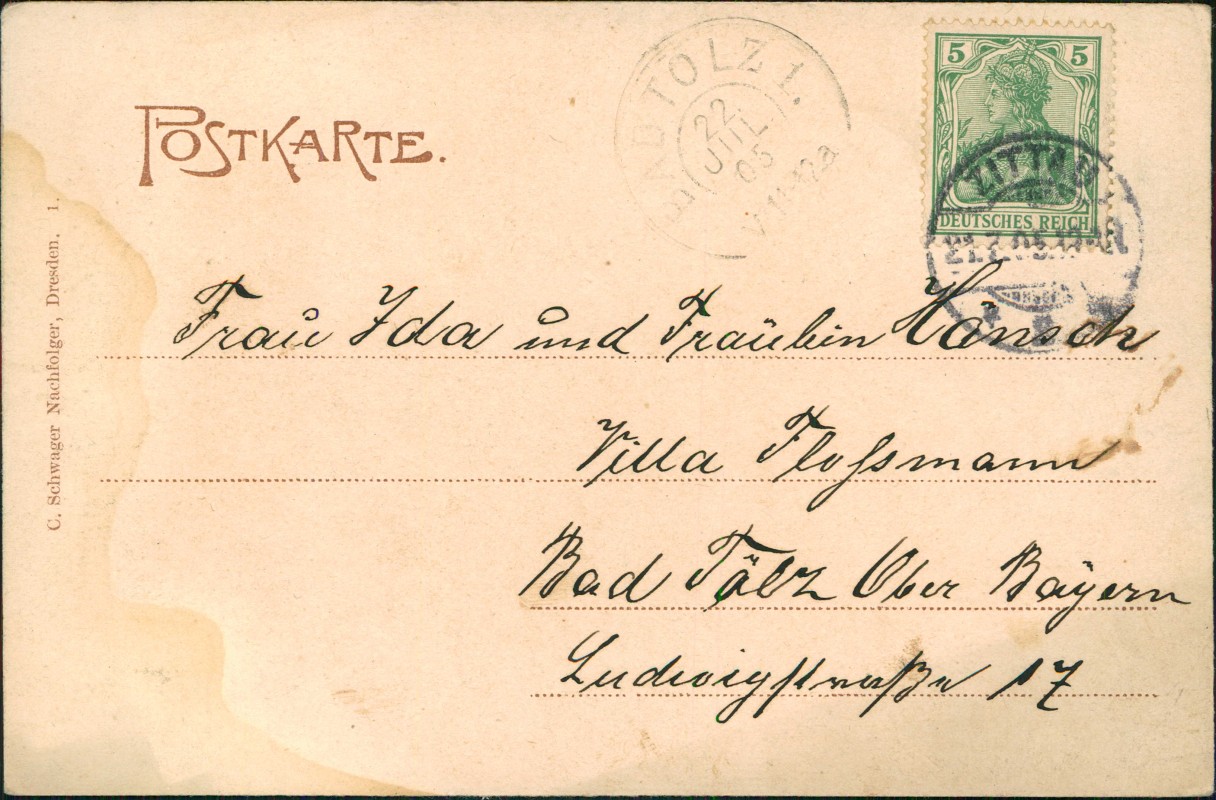 POSTKARTE.
BAD TÖLZ 1.
22
JUL
05
V 11-12a
5 5
DEUTSCHES REICH
ZITTAU
21.7.05.
Frau Ida und Fräulein Hänsch
Villa Floßmann
Bad Tölz Ober Bayern
Ludwigstraße 17
C. Schwager Nachfolger, Dresden. 1.